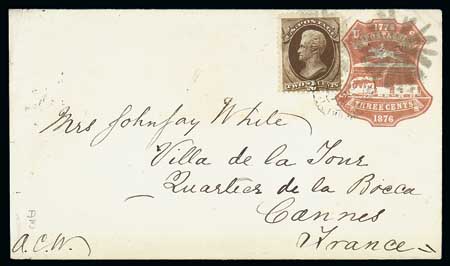 U.S. POSTAGE
TWO CENTS
1776
POSTAGE
THREE CENTS
1876
Mrs John Jay White
Villa de la Tour
Quartier de la Bocca
Cannes
France
A.C.W.